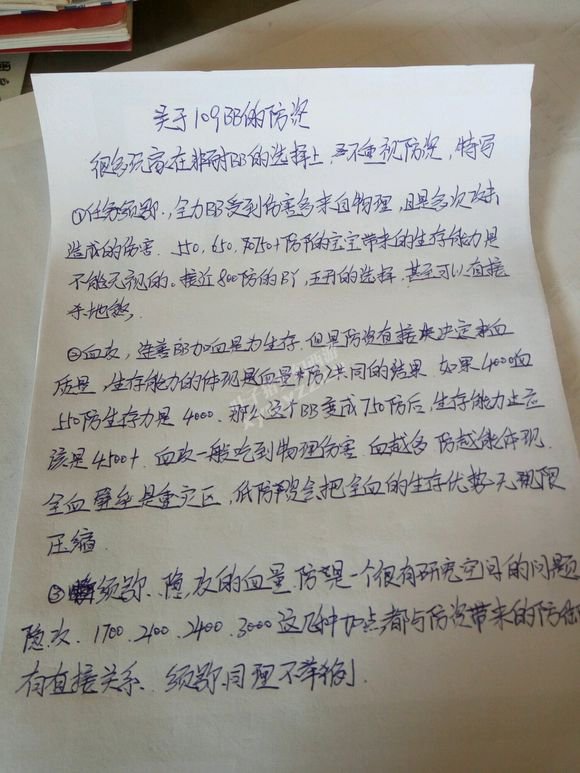 关于109BB的防资
很多玩家在非耐BB的选择上,不重视防资,特写
①任务须弥,全力BB受到伤害多来自物理,且是多次攻击
造成的伤害. 550, 650, 750+防的宝宝带来的生存能力是
不能无视的。接近800防的BY,玉开的选择.甚至可以直接
杀地煞.
②血攻,连善BB加血是为生存.但是防资有直接决定来血
质量,生存能力的体现是血量与防之共同的结果.如果4000血
550防生存力是4000.那么这个BB变成750防后,生存能力应
该是4500+.血攻一般吃到物理伤害.血越多防越能体现.
全血 是重灾区,低防资会把全血的生存优势无限
压缩.
③须弥、隐攻的血量.防是一个很有研究空间的问题
隐攻.1700.2100.2400.3000这几种加点都与防资带来的防
有直接关系.须弥同理不举例.